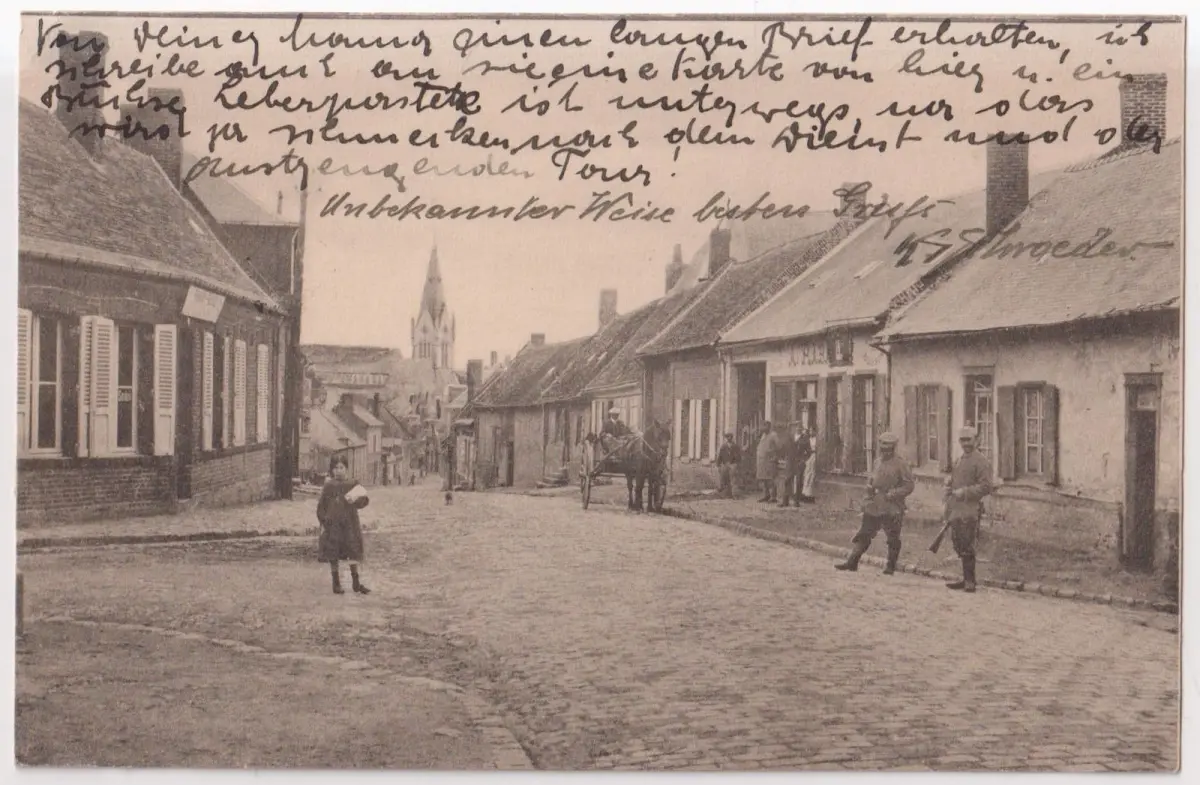 Von Deiner Mama einen langen Brief erhalten, ich
schreibe auch an sie eine Karte von hier u. ein
Büchse Leberpastete ist unterwegs, na das
wird ja schmecken nach dem Dienst und der
anstrengenden Tour!
Unbekannter Weise besten Gruß
Schroeder